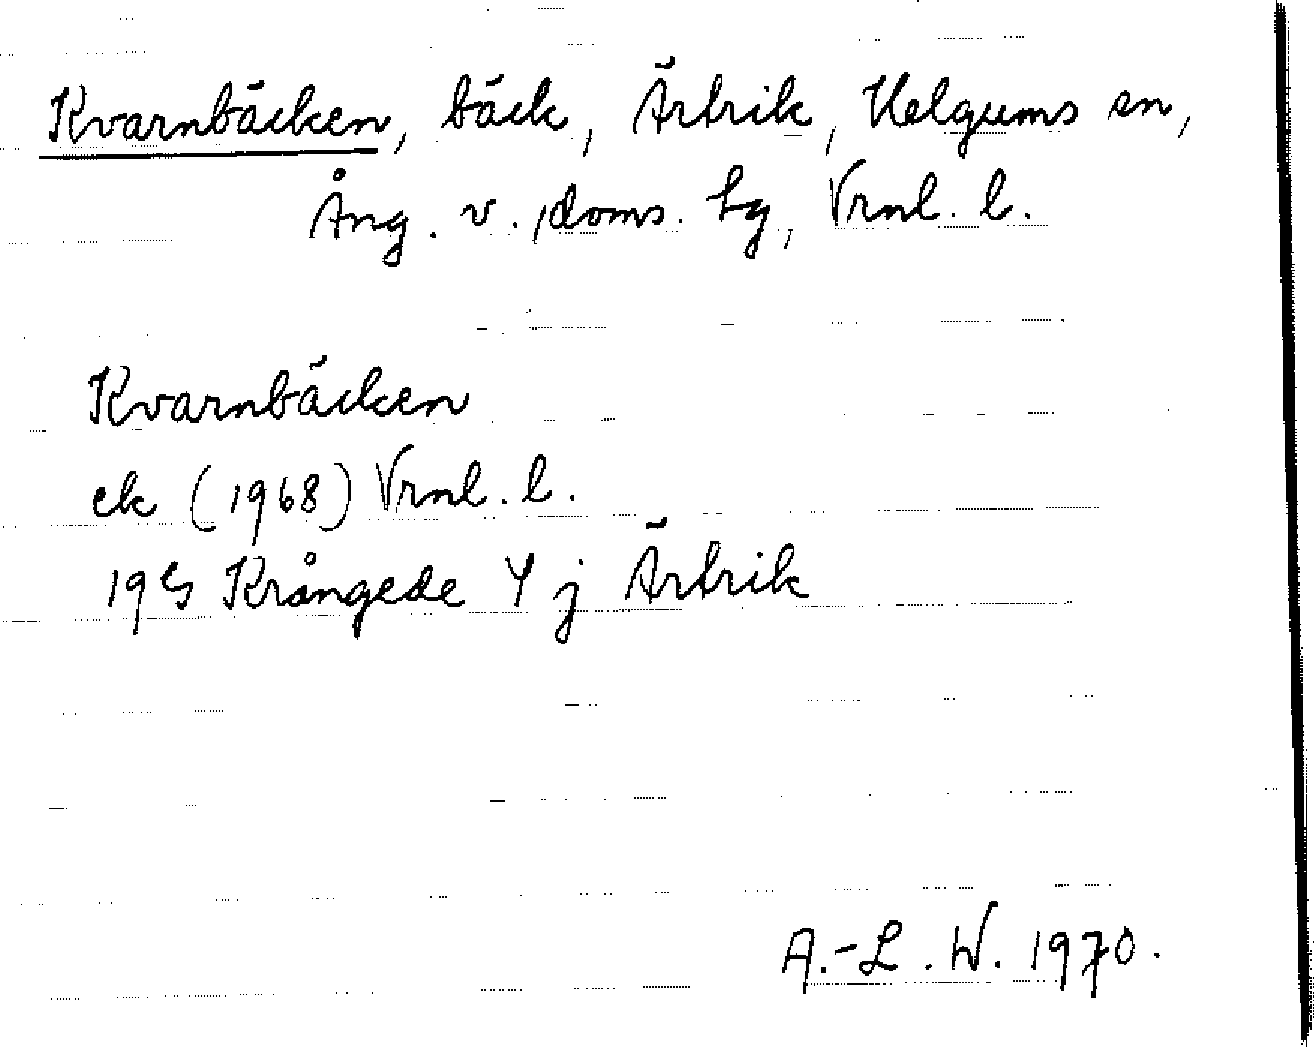 Kvarnbäcken, bäck, Ärtrik, Helgums sn,
Ång. v. doms. hg, Vrnl. l.
Kvarnbäcken
ek (1968) Vrnl. l.
19G Krångede Y j Ärtrik
A.-L. W. 1970.